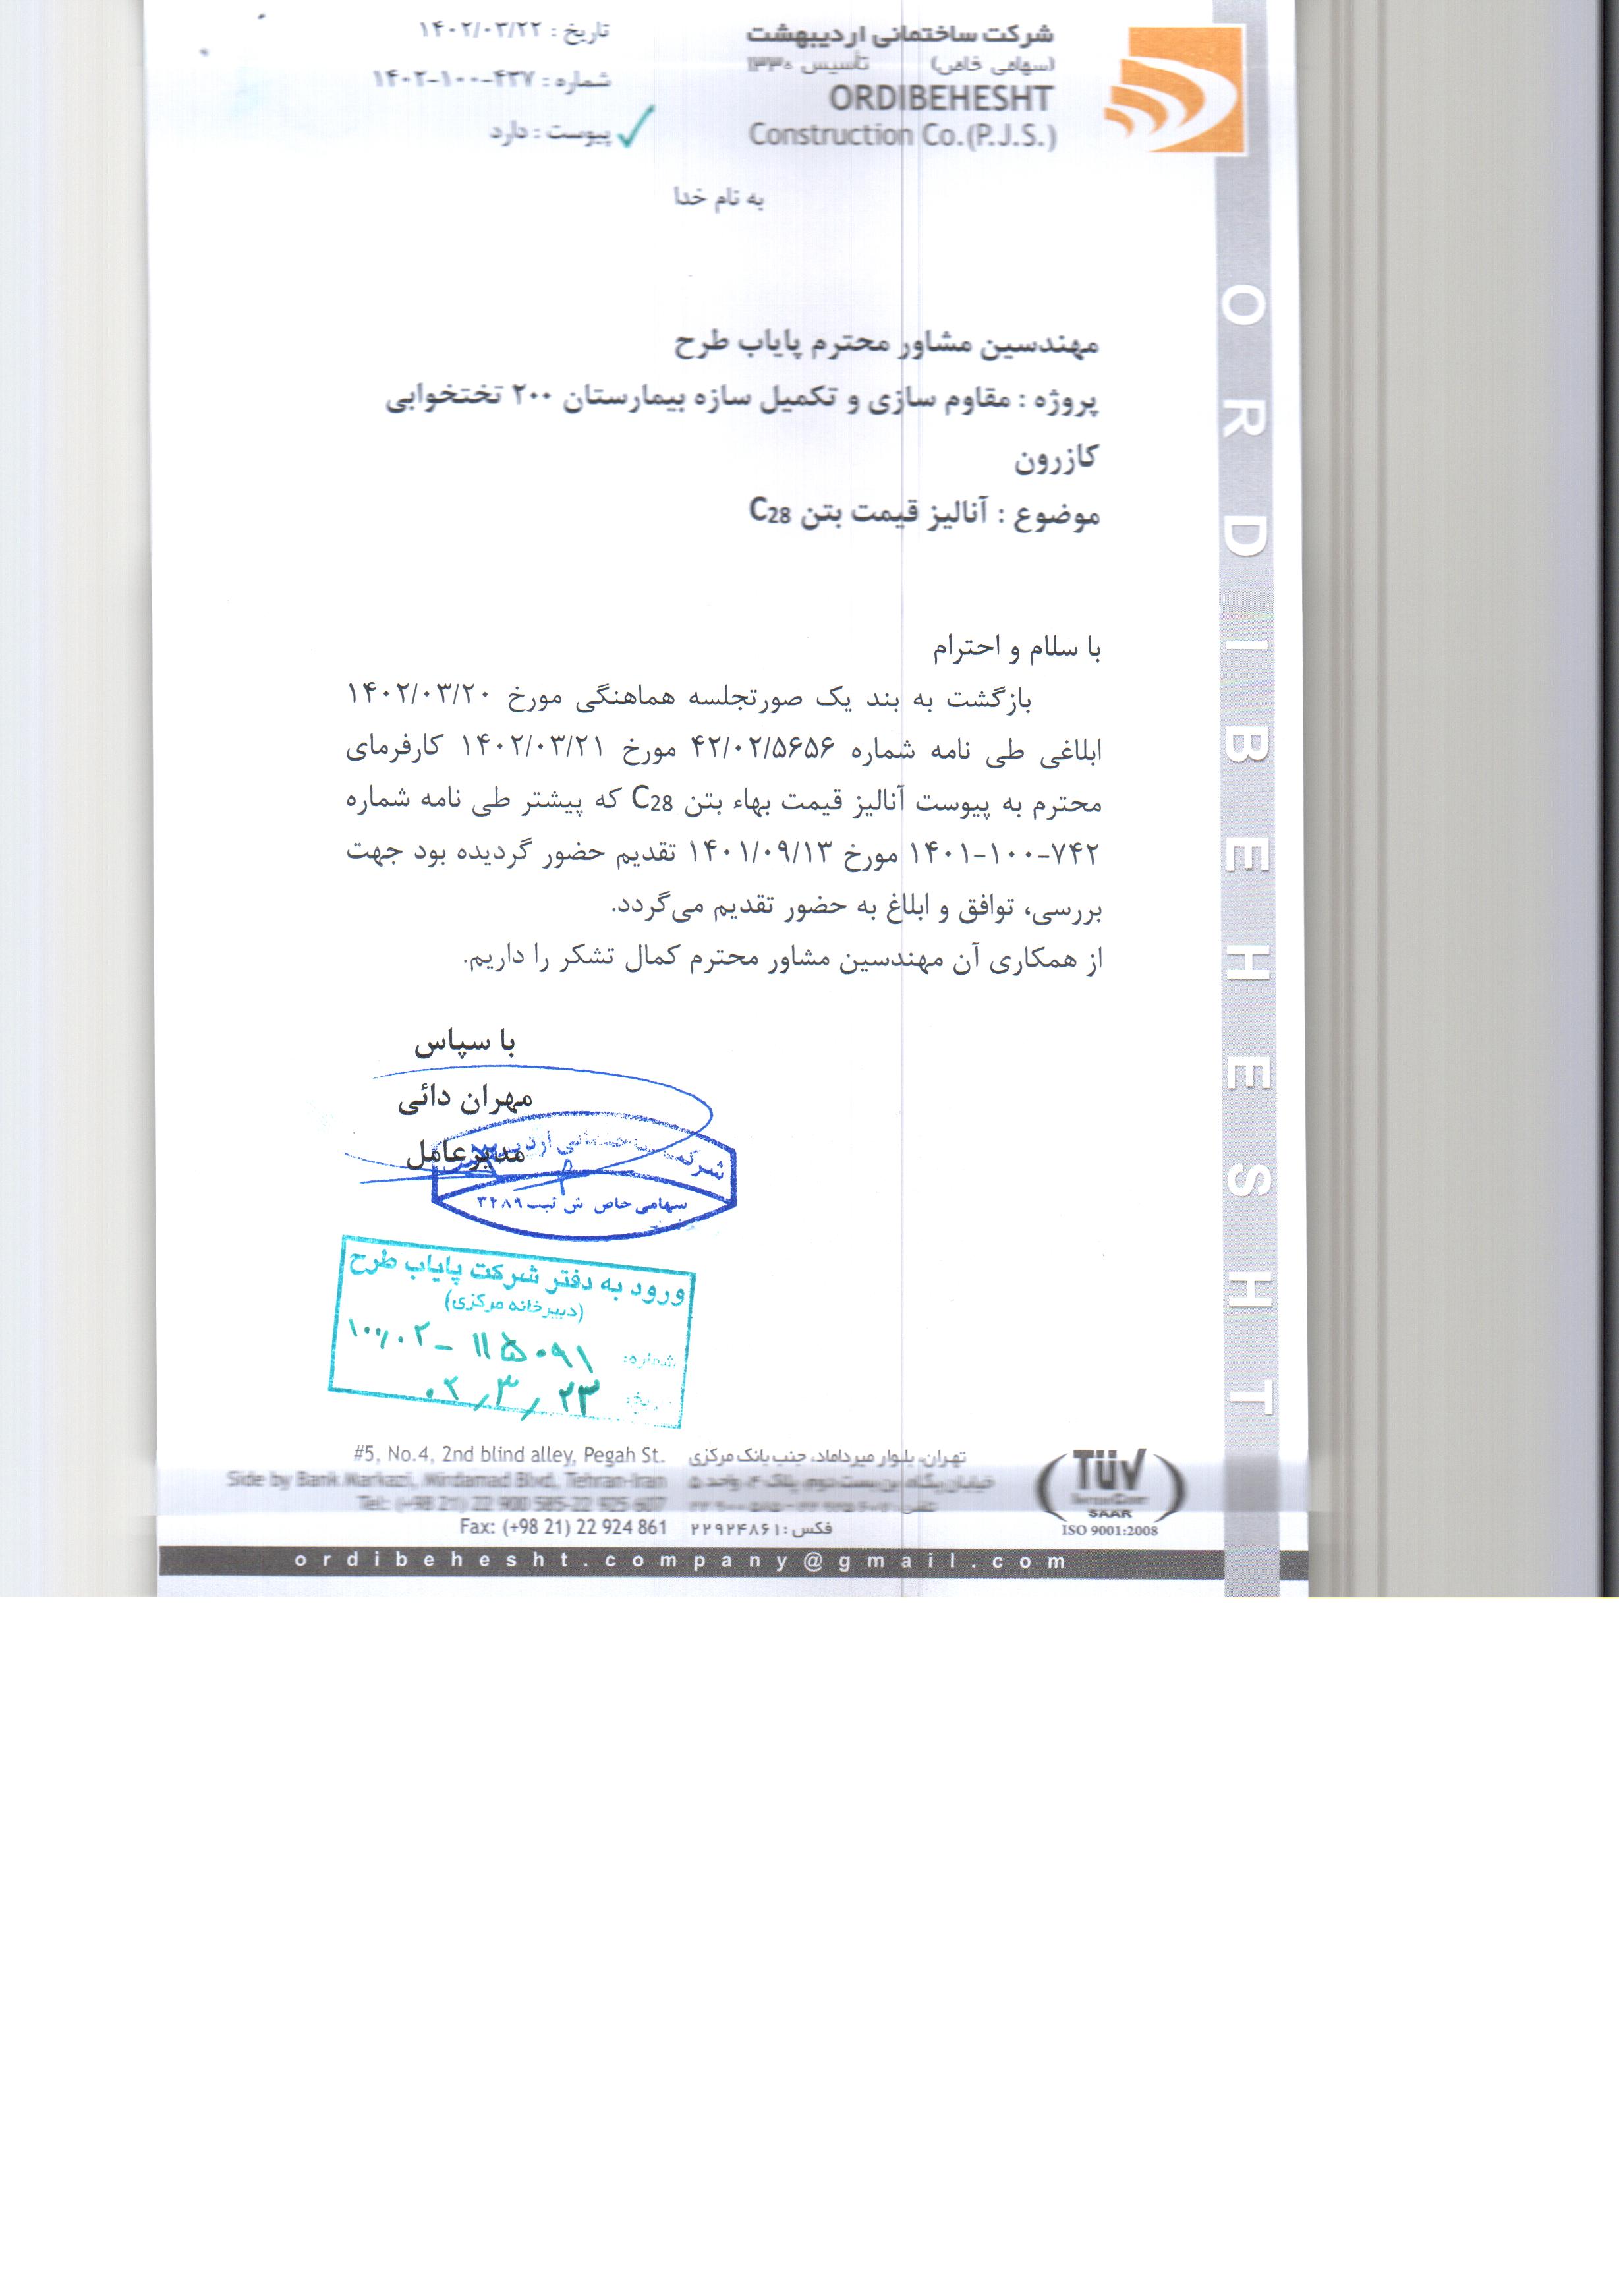 شرکت ساختمانی اردیبهشت
(سهامی خاص) تأسیس ۱۳۳۰
ORDIBEHESHT
Construction Co.(P.J.S.)
تاریخ : ۱۴۰۲/۰۳/۲۲
شماره : ۱۴۰۲-۱۰۰-۴۳۷
پیوست : دارد
به نام خدا
مهندسین مشاور محترم پایاب طرح
پروژه : مقاوم سازی و تکمیل سازه بیمارستان ۲۰۰ تختخوابی
کازرون
موضوع : آنالیز قیمت بتن C28
با سلام و احترام
بازگشت به بند یک صورتجلسه هماهنگی مورخ ۱۴۰۲/۰۳/۲۰
ابلاغی طی نامه شماره ۴۲/۰۲/۵۶۵۶ مورخ ۱۴۰۲/۰۳/۲۱ کارفرمای
محترم به پیوست آنالیز قیمت بهاء بتن C28 که پیشتر طی نامه شماره
۱۴۰۱-۱۰۰-۷۴۲ مورخ ۱۴۰۱/۰۹/۱۳ تقدیم حضور گردیده بود جهت
بررسی، توافق و ابلاغ به حضور تقدیم می‌گردد.
از همکاری آن مهندسین مشاور محترم کمال تشکر را داریم.
با سپاس
مهران دائی
مدیرعامل
شرکت ساختمانی اردیبهشت
سهامی خاص ش ثبت ۳۴۸۹
ورود به دفتر شرکت پایاب طرح
(دبیرخانه مرکزی)
شماره: ۱۰۰/۰۲ - ۱۱۵۰۹۱
تاریخ: ۰۲/۳/۲۳
تهران، بلوار میرداماد، جنب بانک مرکزی
خیابان پگاه، بن‌بست دوم، پلاک ۴، واحد ۵
فکس: ۲۲۹۲۴۸۶۱
#5, No.4, 2nd blind alley, Pegah St.
Side by Bank Markazi, Mirdamad Blvd, Tehran-Iran
Tel: (+98 21) 22 900 585-22 925 607
Fax: (+98 21) 22 924 861
TÜV
SAAR
ISO 9001:2008
ordibehesht.company@gmail.com
ORDIBEHESHT